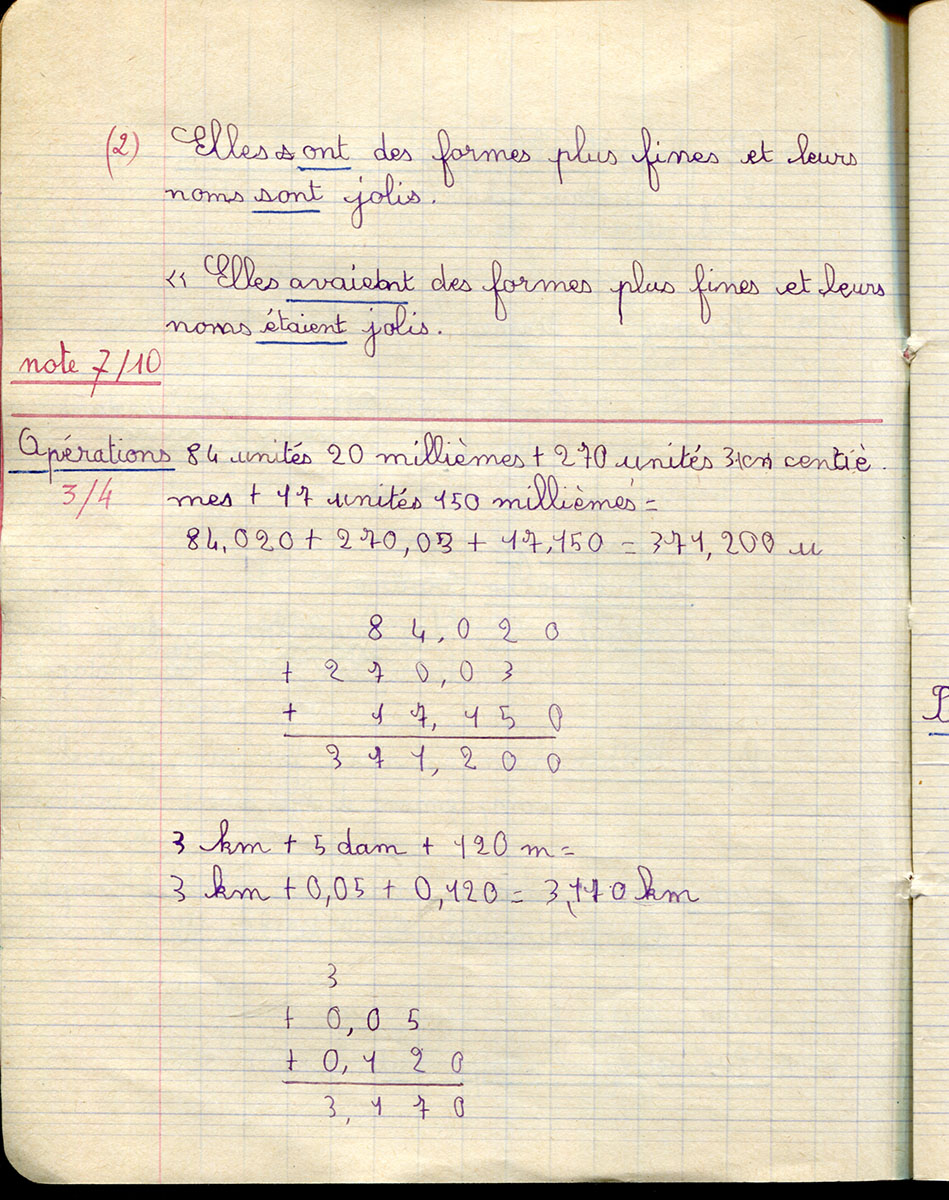 (2) Elles ont des formes plus fines et leurs
noms sont jolis.
« Elles avaient des formes plus fines et leurs
noms étaient jolis.
note 7/10
Opérations 84 unités 20 millièmes + 270 unités 3 centiè
3/4 mes + 17 unités 150 millièmes =
84,020 + 270,03 + 17,150 = 371,200 u
8 4, 0 2 0
+ 2 7 0, 0 3
+ 1 7, 1 5 0
3 7 1, 2 0 0
3 km + 5 dam + 120 m =
3 km + 0,05 + 0,120 = 3,170 km
3
+ 0, 0 5
+ 0, 1 2 0
3, 1 7 0